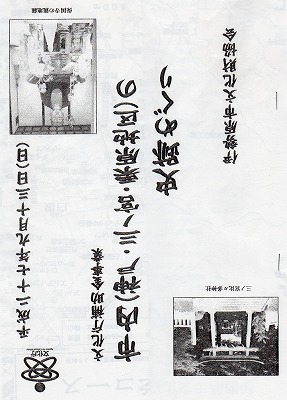 平成二十七年九月十三日(日)
文化庁補助金事業
市内(神戸・三ノ宮・栗原地区)の
史跡めぐり
伊勢原市文化財協会
三ノ宮比々多神社
文化庁